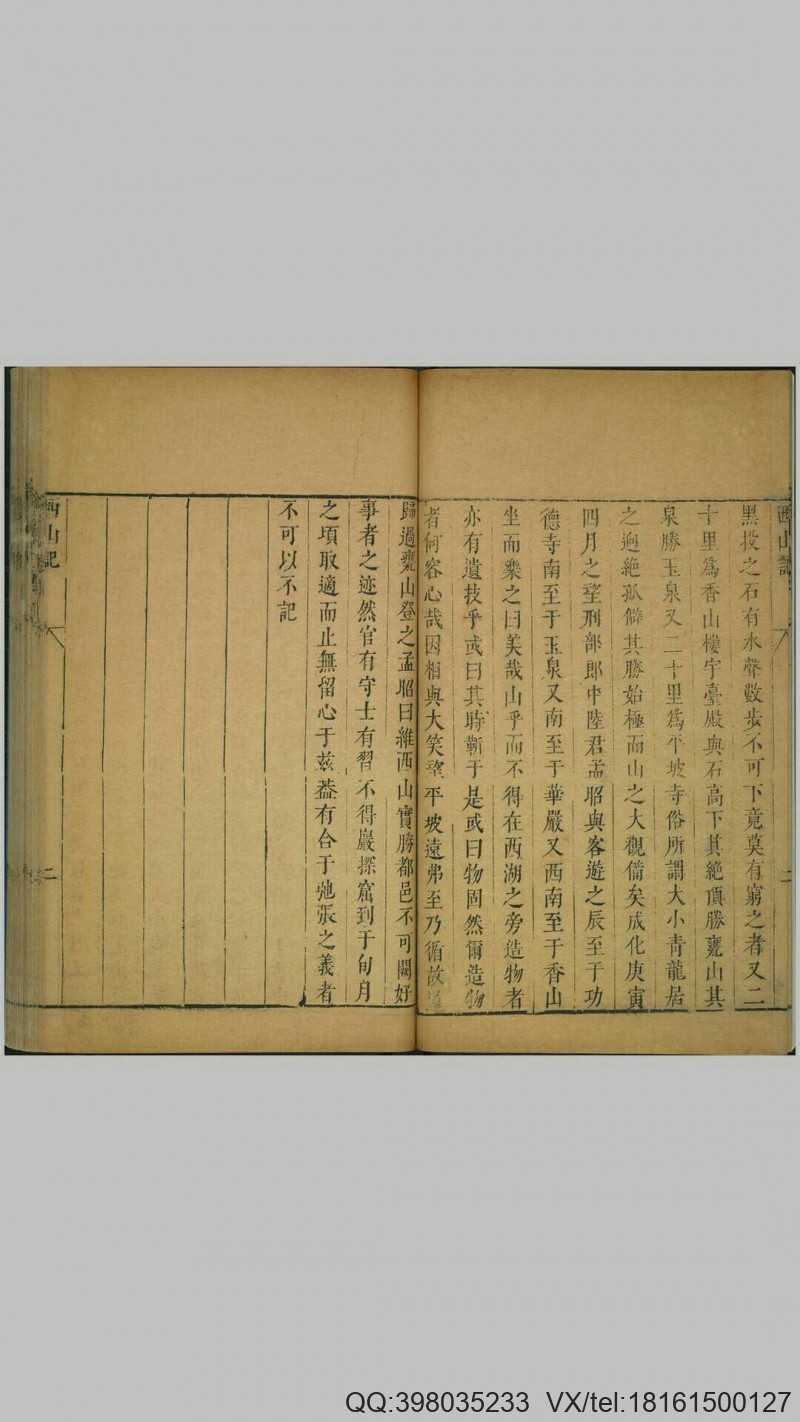 西山記
二
黑投之石有水聲數步不可下竟莫有窮之者又二
十里爲香山樓宇臺殿與石高下其絶頂勝甕山其
泉勝玉泉又二十里爲平坡寺俗所謂大小青龍居
之逈絶孤僻其勝始極而山之大觀備矣成化庚寅
四月之望刑部郎中陸君孟昭與客遊之辰至于功
德寺南至于玉泉又南至于華嚴又西南至于香山
坐而樂之曰美哉山乎而不得在西湖之旁造物者
亦有遺技乎或曰其時靳于是或曰物固然爾造物
者何容心哉因相與大笑望平坡遠弗至乃循故道
歸過甕山登之孟昭曰維西山實勝都邑不可闕好
事者之迹然官有守士有習不得巖探窟到于旬月
之頃取適而止無留心于兹葢有合于弛張之義者
不可以不記
西山記
二
QQ:398035233 VX/tel:18161500127